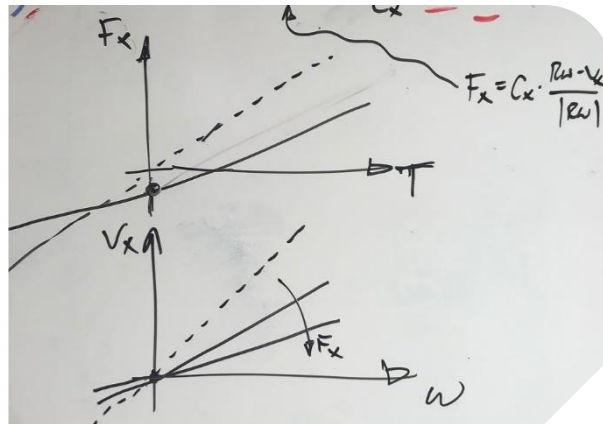 Cx
Fx
Fx = Cx · Rω - Vx / |Rω|
T
Vx
Fx
ω